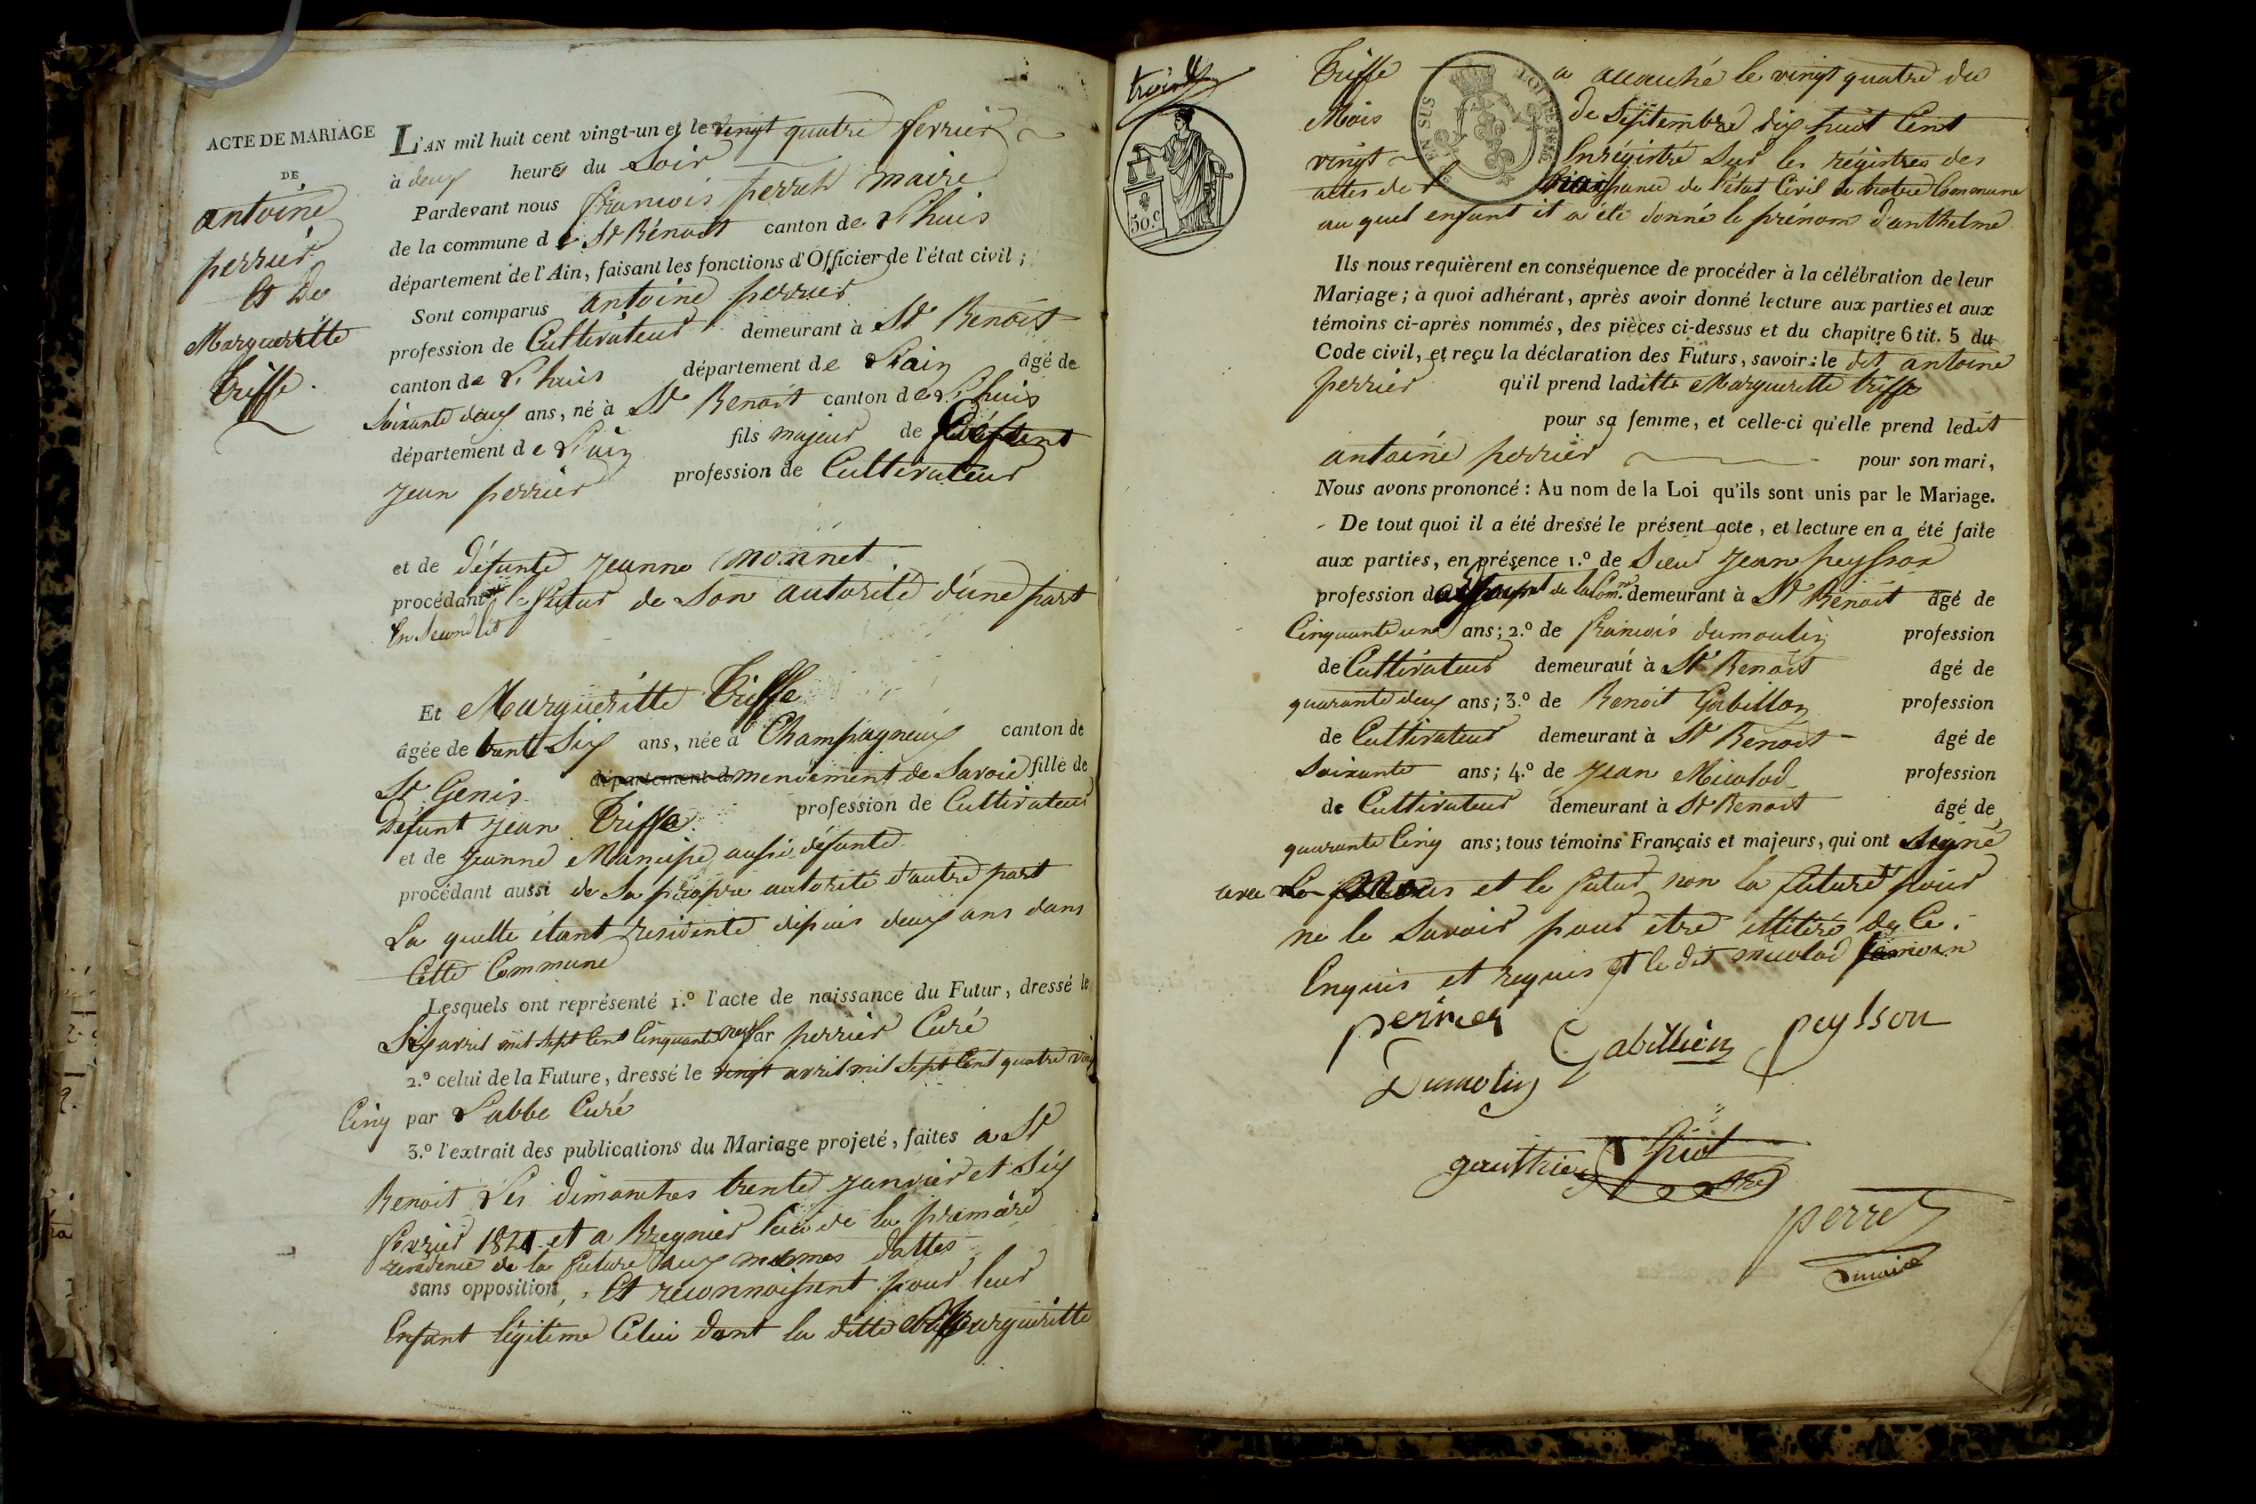 ACTE DE MARIAGE
DE
antoine
perrier
Et De
Margueritte
Triffe.
L'AN mil huit cent vingt-un et le vingt quatre fevrier
à deux heures du Soir
Pardevant nous francois perret maire
de la commune de St Bénoit canton de L'huis
département de l'Ain, faisant les fonctions d'Officier de l'état civil;
Sont comparus antoine perrier
profession de Cultivateur demeurant à St Benoit
canton de L'huis département de L'ain âgé de
Soixante deux ans, né à St Benoit canton de L'huis
département de L'ain fils majeur de Défunt
jean perrier profession de Cultivateur
et de défunte jeanne monnet
procédant le futur de Son autorité d'une part
En Second lit
Et Marguéritte Triffe
âgée de trente Six ans, née à Champagneux canton de
St Genis département d mendement de Savoie fille de
Défunt jean Triffe profession de Cultivateur
et de jeanne Mancipe aussi défunte
procédant aussi de Sa propre autorité d'autre part
La quelle étant residente depuis deux ans dans
Cette Commune
Lesquels ont représenté 1.º l'acte de naissance du Futur, dressé le
Six avril mil Sept Cent Cinquante neuf par perrier Curé
2.º celui de la Future, dressé le vingt avril mil Sept Cent quatre vingt
Cinq par Labbe Curé
3.º l'extrait des publications du Mariage projeté, faites a St
Benoit Les dimanches trente janvier et Six
fevrier 1821 et a Bregnier lieu de la premiere
residence de la future aux mêmes dattes
sans opposition, Et reconnoissent pour leur
Enfant légitime Celui dont la ditte Marguéritte
trois
50.c
EN SUS
Triffe a accouché le vingt quatre du
Mois de Septembre dix huit Cent
vingt Enrégistré Sur les régistres des
actes de naissance de l'état Civil de notre Commune
au quel enfant il a été donné le prénom d'anthelme
Ils nous requièrent en conséquence de procéder à la célébration de leur
Mariage; à quoi adhérant, après avoir donné lecture aux parties et aux
témoins ci-après nommés, des pièces ci-dessus et du chapitre 6 tit. 5 du
Code civil, et reçu la déclaration des Futurs, savoir: le dit antoine
perrier qu'il prend laditte Marguéritte triffe
pour sa femme, et celle-ci qu'elle prend ledit
antoine perrier pour son mari,
Nous avons prononcé: Au nom de la Loi qu'ils sont unis par le Mariage.
De tout quoi il a été dressé le présent acte, et lecture en a été faite
aux parties, en présence 1.º de Sieur jean peysson
profession d de la Com.ne demeurant à St Benoit âgé de
Cinquante un ans; 2.º de francois dumoulin profession
de Cultivateur demeurant à St Benoit âgé de
quarante deux ans; 3.º de Benoit Gabillon profession
de Cultivateur demeurant à St Benoit âgé de
Soixante ans; 4.º de jean Micolod profession
de Cultivateur demeurant à St Benoit âgé de
quarante Cinq ans; tous témoins Français et majeurs, qui ont Signé
avec Nous et le futur non la future pour
ne le Savoir pour être illitéré de Ce
Enquis et requis et le dit micolod témoin
perrier Gabillion peysson
Dumolin
gauthier
perret
maire